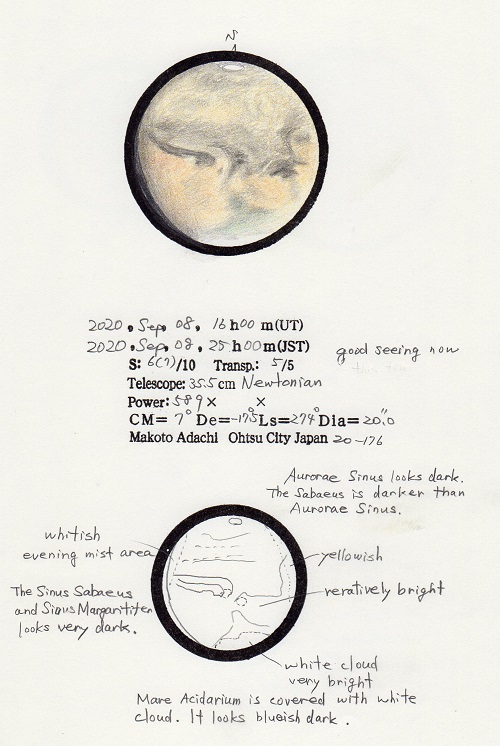 N
2020, Sep, 08, 16 h 00 m(UT)
2020, Sep, 08, 25 h 00 m(JST)
good seeing now
S: 6(7)/10 Transp.: 5/5
Telescope: 35.5 cm Newtonian
Power: 589 × ×
CM= 7° De= -17.5° Ls= 274° Dia= 20".0
Makoto Adachi Ohtsu City Japan 20-176
Aurorae Sinus looks dark.
The Sabaeus is darker than
Aurorae Sinus.
whitish
evening mist area
yellowish
The Sinus Sabaeus
and Sinus Margarititer
looks very dark.
reratively bright
white cloud
very bright
Mare Acidarium is covered with white
cloud. It looks blueish dark.